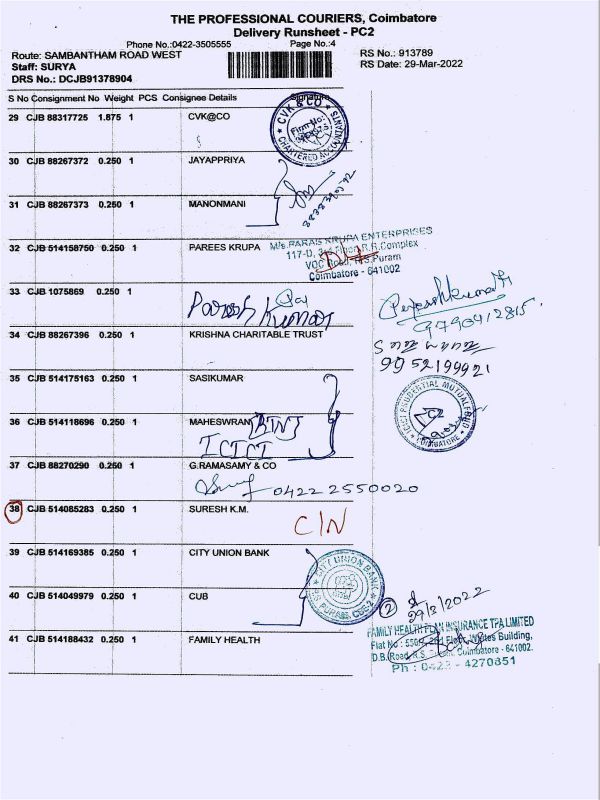 THE PROFESSIONAL COURIERS, Coimbatore
Delivery Runsheet - PC2
Phone No.:0422-3505555 Page No.:4
Route: SAMBANTHAM ROAD WEST RS No.: 913789
Staff: SURYA RS Date: 29-Mar-2022
DRS No.: DCJB91378904
S No Consignment No Weight PCS Consignee Details Signature
29 CJB 88317725 1.875 1 CVK@CO
CVK & CO
Firm No:
CHARTERED ACCOUNTANTS
30 CJB 88267372 0.250 1 JAYAPPRIYA
31 CJB 88267373 0.250 1 MANONMANI
32 CJB 514158750 0.250 1 PAREES KRUPA
M/s.PARAS KRUPA ENTERPRISES
117-D, 3rd Floor, R.R.Complex
VOC Road, R.S.Puram
Coimbatore - 641002
33 CJB 1075869 0.250 1
Paresh Kumar
9790412815
34 CJB 88267396 0.250 1 KRISHNA CHARITABLE TRUST
9952199921
35 CJB 514175163 0.250 1 SASIKUMAR
ICICI PRUDENTIAL MUTUAL FUND
COIMBATORE
36 CJB 514118696 0.250 1 MAHESWRAN
ICICI
37 CJB 88270290 0.250 1 G.RAMASAMY & CO
0422 2550020
38 CJB 514085283 0.250 1 SURESH K.M.
C/N
39 CJB 514169385 0.250 1 CITY UNION BANK
CITY UNION BANK
40 CJB 514049979 0.250 1 CUB
2
29/3/2022
41 CJB 514188432 0.250 1 FAMILY HEALTH
FAMILY HEALTH PLAN INSURANCE TPA LIMITED
Building,
D.B.Road, R.S. Coimbatore - 641002.
Ph : 0422 - 4270851